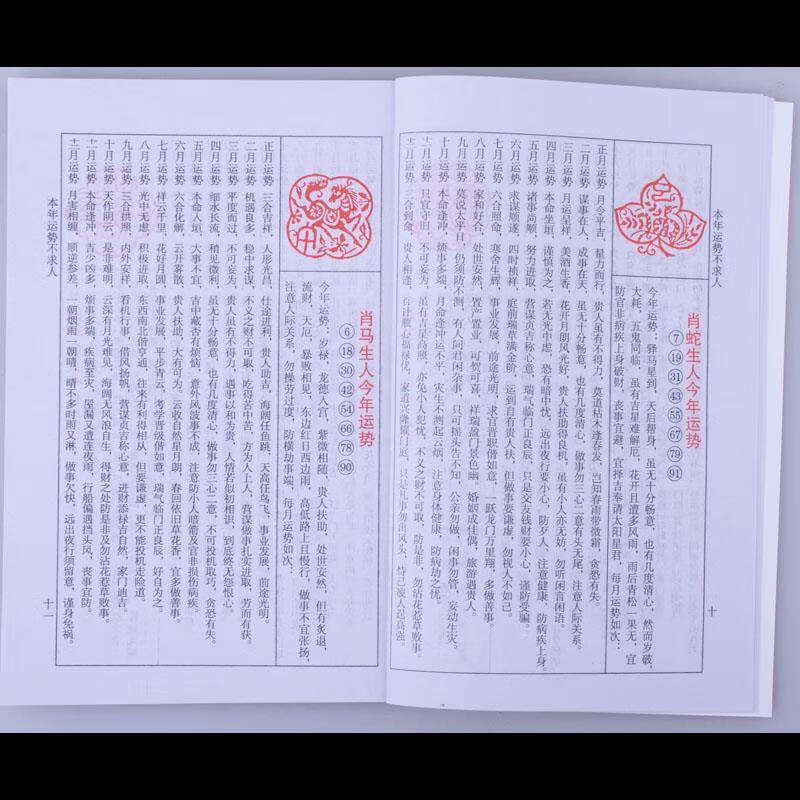 本年运势不求人
十
肖蛇生人今年运势
⑦⑲㉛㊸55 67 79 91
今年运势：驿马星到，天后帮身，虽无十分畅意，也有几度清心，然而岁破，
大耗，五鬼同临，虽有吉星难解厄，花开且遭多风雨，雨后青松一果无，宜
防官非病疾上身破财，丧事宜避，宜择吉奉请太阳星君，每月运势如次：
正月运势 月令平吉，量力而行，贵人虽有不得力，莫道枯木逢春发，岂知春雨带微霜，贪恐有失。
二月运势 谋事在人，成事在天，虽无十分畅意，也有几度清心，做事勿三心二意有头无尾，注意人际关系。
三月运势 月运呈祥，美酒生香，花开月朗风光好，贵人扶助得良机，虽有小人亦无妨，勿听闲言闲语。
四月运势 本命坐垣，谨慎为之，若无光中虑，恐有暗中忧，远出夜行要小心，防歹人，注意健康，防病疾上身。
五月运势 诸事尚顺，努力进取，瑞气临门正良辰，只是交友钱财要小心，谨防受骗。
六月运势 求谋顺遂，四时祯祥，庭前瑞草满金阶，运到自有贵人扶，但做事要谦虚，勿视人不如己。
七月运势 六合照命，寒舍生辉，事业发展，前途光明，求官晋职偕如意，一跃龙门万里翔，多做善事。
八月运势 家和好合，处世安然，置产置业，可贺可喜，祥瑞盈门景色幽，婚姻成佳偶，旅游遇贵人。
九月运势 莫说太平日，仍须防不测，有人问君闲杂事，只可摇头告不知，公亲勿做，闲事勿管，妄动生灾。
十月运势 本命逢冲，烦事多端，月命逢冲运不平，灾生不测起云烟，注意身体健康，防病劫之忧。
十一月运势 只宜守旧，不可妄为，虽有吉星高照，亦免小人犯忧，不义之财不可取，防是非，勿沾花惹草败事。
十二月运势 三合到命，贵人相逢，百计顺心福禄优，家道兴隆骤门庭，只是凡事勿出风头，恃己凌人逞高强。
肖马生人今年运势
⑥⑱㉚㊷54 66 78 90
今年运势：岁禄，龙德入宫，紫微相随，贵人扶助，处世安然，但有炙退，
流财，天厄，暴败相见，东边红日西边雨，高低路上且慢行，做事不宜张扬，
注意人际关系，勿操劳过度，防横劫事端，每月运势如次：
正月运势 三合吉祥，人形光昌，仕途进利，贵人助吉，海阔任鱼跳，天高任鸟飞，事业发展，前途光明。
二月运势 机遇良多，稳中求谋，不义之财不可取，吃得苦中苦，方为人上人，营谋做事扎实进取，劳而有获。
三月运势 平度而过，不可妄为，贵人虽有不得力，遇事以和为贵，人情若似初相识，到底终无怨恨心。
四月运势 细水长流，稍见微利，虽无十分畅意，也有几度清心，做事勿三心二意，不可投机取巧，贪恐有失。
五月运势 本命入垣，大事不宜，吉中藏凶多有烦恼，意外风波事不成，注意防小人暗箭及官非损伤病疾。
六月运势 六合化解，云开雾散，贵人扶助，大有可为，云收自然星月朗，春回依旧草花香，宜多做善事。
七月运势 祥云千里，花好月圆，事业发展，平步青云，考学晋级偕如意，瑞气临门正良辰，好自为之。
八月运势 光中无虑，积极进取，东西南北偕亨通，往来有利得相从，但要谦虚，更不能投机走险道。
九月运势 三合拱照，内外安祥，看机行事，借风扬帆，营谋贞吉称心意，进财添禄吉自然，家门迪吉。
十月运势 天作阴云，是非难明，云深有月光难见，海阔无风浪自生，得财之处防是非及勿沾花惹草败事。
十一月运势 本命逢冲，吉少凶多，烦事多端，疾病至灾，屋漏又遭连夜雨，行船偏遇挡头风，丧事宜防。
十二月运势 月害相缠，顺逆参差，一朝烟雨一朝晴，晴不多时雨又淋，做事欠快，远出夜行须留意，谨身免祸。
本年运势不求人
十一